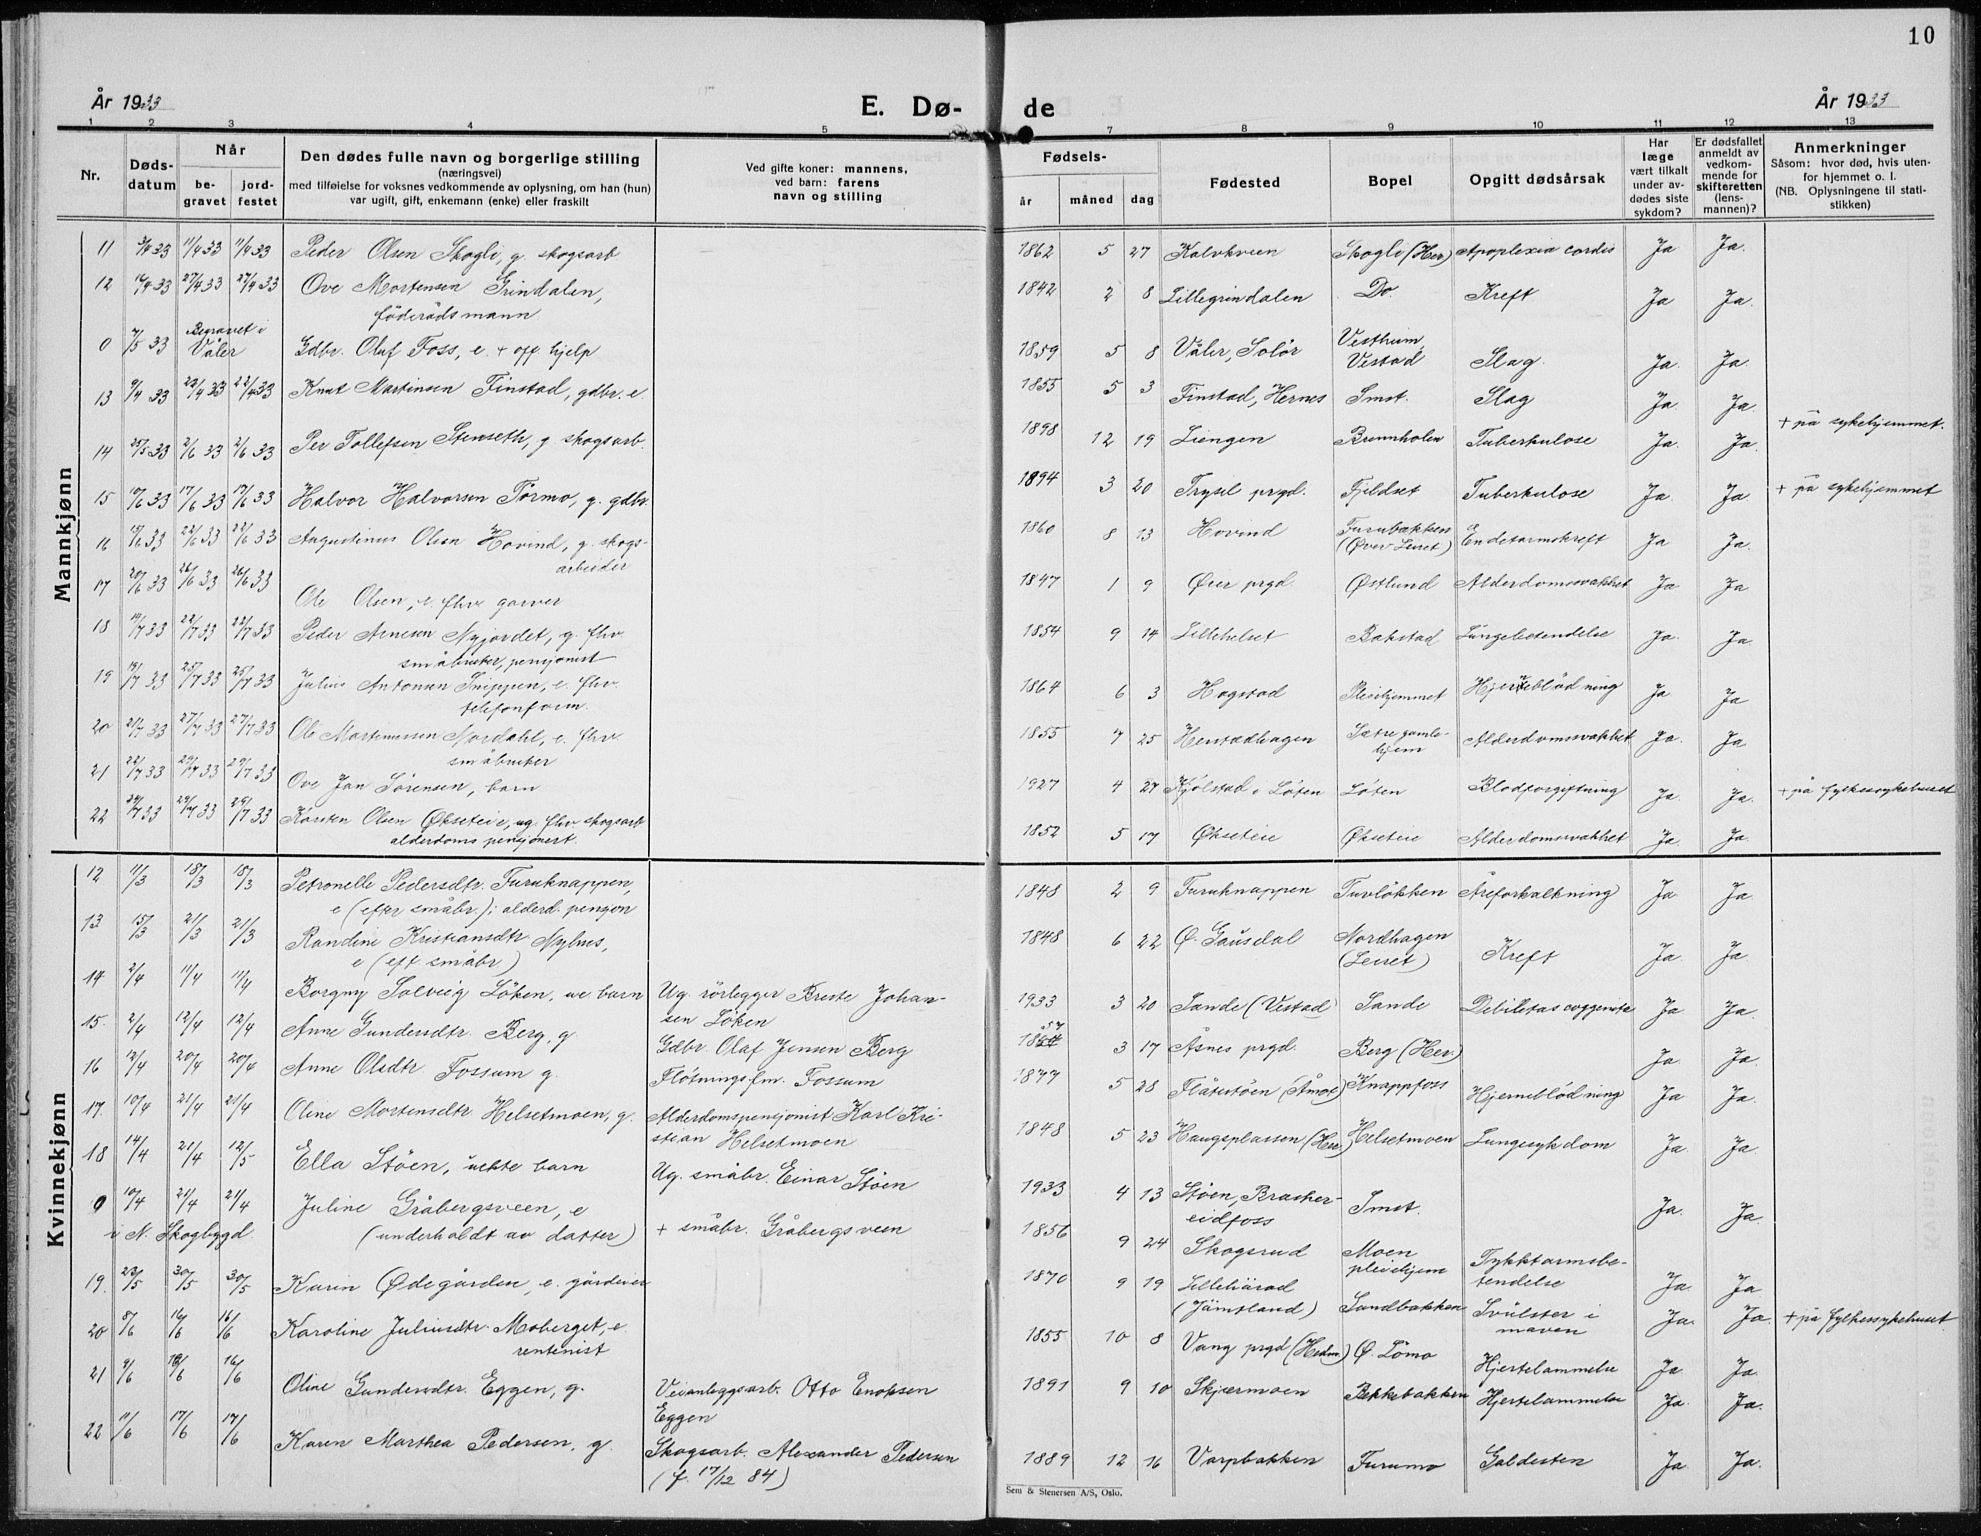 10
År 1933
E. Dø-
de
År 1933
1 2 3 4 5 7 8 9 10 11 12 13
Nr.
Døds-
datum
Når
be-
gravet
jord-
festet
Den dødes fulle navn og borgerlige stilling
(næringsvei)
med tilføielse for voksnes vedkommende av oplysning, om han (hun)
var ugift, gift, enkemann (enke) eller fraskilt
Ved gifte koner: mannens,
ved barn: farens
navn og stilling
Fødsels-
år måned dag
Fødested
Bopel
Opgitt dødsårsak
Har
læge
vært tilkalt
under av-
dødes siste
sykdom?
Er dødsfallet
anmeldt av
vedkom-
mende for
skifteretten
(lens-
mannen)?
Anmerkninger
Såsom: hvor død, hvis uten-
for hjemmet o. l.
(NB. Oplysningene til stati-
stikken)
Mannkjønn
11 3/4 33 11/4 33 11/4 33 Peder Olsen Skogli, g. skogsarb 1862 5 27 Kalvkveen Skogli (Her) Apoplexia cordis Ja Ja.
12 14/4 33 27/4 33 27/4 33 Ove Mortensen Grindalen, 1842 2 8 Lillegrindalen Do. Kreft Ja Ja.
föderådsmann
0 7/5 33 Begravet i
Våler Gdbr. Oluf Foss, e. + off. hjelp 1859 5 8 Våler, Solör Vestheim,
Vestad Slag. Ja. Ja.
13 9/4 33 22/4 33 22/4 33 Knut Martinsen Finstad, gdbr. e. 1855 5 3 Finstad, Hernes Smst. Slag Ja. Ja.
14 25/5 33 2/6 33 2/6 33 Per Tollefsen Stenseth, g. skogsarb. 1898 12 19 Liengen Brennholen Tuberkulose Ja. Ja. + på sykehjemmet.
15 10/6 33 17/6 33 17/6 33 Halvor Halvorsen Tørmo, g. gdbr. 1894 3 20 Trysil prgd. Fjeldset Tuberkulose Ja. Ja + på sykehjemmet
16 15/6 33 22/6 33 22/6 33 Augustinus Olsen Hovind, g. skogs- 1860 8 13 Hovind Furubakken
(Øver Leiret) Endetarmskreft Ja Ja.
arbeider
17 20/6 33 26/6 33 26/6 33 Ole Olsen, e. fhv. garver 1847 1 9 Øier prgd. Østlund Alderdomssvakhet Ja Ja
18 14/7 33 22/7 33 22/7 33 Peder Arnesen Nyjordet, g. fhv. 1854 9 14 Lillehelset Bakstad Lungebetendelse Ja. Ja.
småbruker, pensjonist
19 19/7 33 25/7 33 25/7 33 Julius Antonsen Snippen, e. fhv. 1864 6 3 Hagstad Pleiehjemmet Hjerneblödning Ja Ja
telefonform.
20 21/7 33 27/7 33 27/7 33 Ole Martinussen Nordahl, e. fhv. 1855 7 25 Henstadhagen Sætre gamle-
hjem Alderdomssvakhet Ja. Ja
småbruker
21 22/7 33 29/7 33 29/7 33 Ove Jan Sörensen, barn 1927 4 27 Kjölstad i Löten Löten Blodforgiftning Ja Ja. + på fylkessykehuset
22 24/7 33 29/7 33 29/7 33 Karsten Olsen Økseteie, ug. fhv skogsarb. 1852 5 17 Økseteie Økseteie Alderdomssvakhet Ja. Ja.
alderdoms pensjonert.
Kvinnekjønn
12 11/3 18/3 18/3 Petronelle Pedersdtr. Furuknappen, 1848 2 9 Furuknappen Tuvlökken Åreforkalkning Ja Ja
e (efter småbr.); alderd. pensjon
13 15/3 21/3 21/3 Randine Kristiansdtr. Nylnes, 1848 6 22 Ø. Gausdal Nordhagen
(Leiret) Kreft Ja. Ja.
e (eft småbr.)
14 2/4 11/4 11/4 Borgny Solveig Löken, ue barn Ug. rörlegger Breste Johan-
sen Löken 1933 3 20 Sande (Vestad) Sande Debilitas congenita Ja Ja.
15. 2/4 12/4 12/4 Anne Gundersdtr. Berg, g Gdbr. Olaf Jensen Berg 1857 3 17 Åsnes prgd. Berg (Her.) Ja Ja.
16 12/4 20/4 20/4 Anne Olsdtr Fossum g. Flötningsfm. Fossum 1877 5 28 Flåtestöen (Åmot) Knappfoss Hjerneblödning Ja Ja
17. 10/4 21/4 21/4 Oline Mortensdtr Helsetmoen, g. Alderdomspensjonist Karl Kri-
stian Helsetmoen 1848 5 23 Haugsplassen (Her.) Helsetmoen Lungesykdom Ja. Ja.
18 14/4 21/4 12/5 Ella Stöen, uekte barn Ug. småbr. Einar Stöen 1933 4 13 Stöen, Brasker-
eidfoss Smst. Ja. Ja.
0 10/4 21/4 21/4 Juline Gråbergsveen, e + småbr. Gråbergsveen 1856 9 24 Skogsrud Moen
pleiehjem Tykktarmsbe-
tendelse Ja. Ja
i N. Skogbygd. (underholdt av datter)
19. 23/5 30/5 30/5 Karin Ødegården, e. gårdeier 1870 9 19 Lillehärad
(Jämtland) Sandbakken Svulster i
maven Ja. Ja. + på fylkessykehuset
20 8/6 16/6 16/6 Karoline Juliusdtr. Moberget, e. 1855 10 8 Vang prgd (Hedm.) Ø. Lömo Hjertelammelse Ja Ja
rentenist
21 9/6 16/6 16/6 Oline Gundersdtr. Eggen, g. Veianleggsarb. Otto Enoksen
Eggen 1891 9 10 Skjærmoen Bekkebakken Hjertelammelse Ja. Ja.
22 11/6 17/6 17/6 Karen Marthea Pedersen, g. Skogsarb. Alexander Pedersen
(f. 17/12 84) 1889 12 16 Varpbakken Furumo Galdesten Ja Ja.
Sem & Stenersen A/S, Oslo.